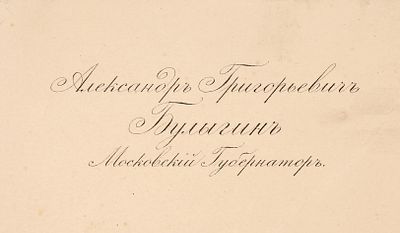 Александръ Григорьевичъ
Булыгинъ
Московскій Губернаторъ.